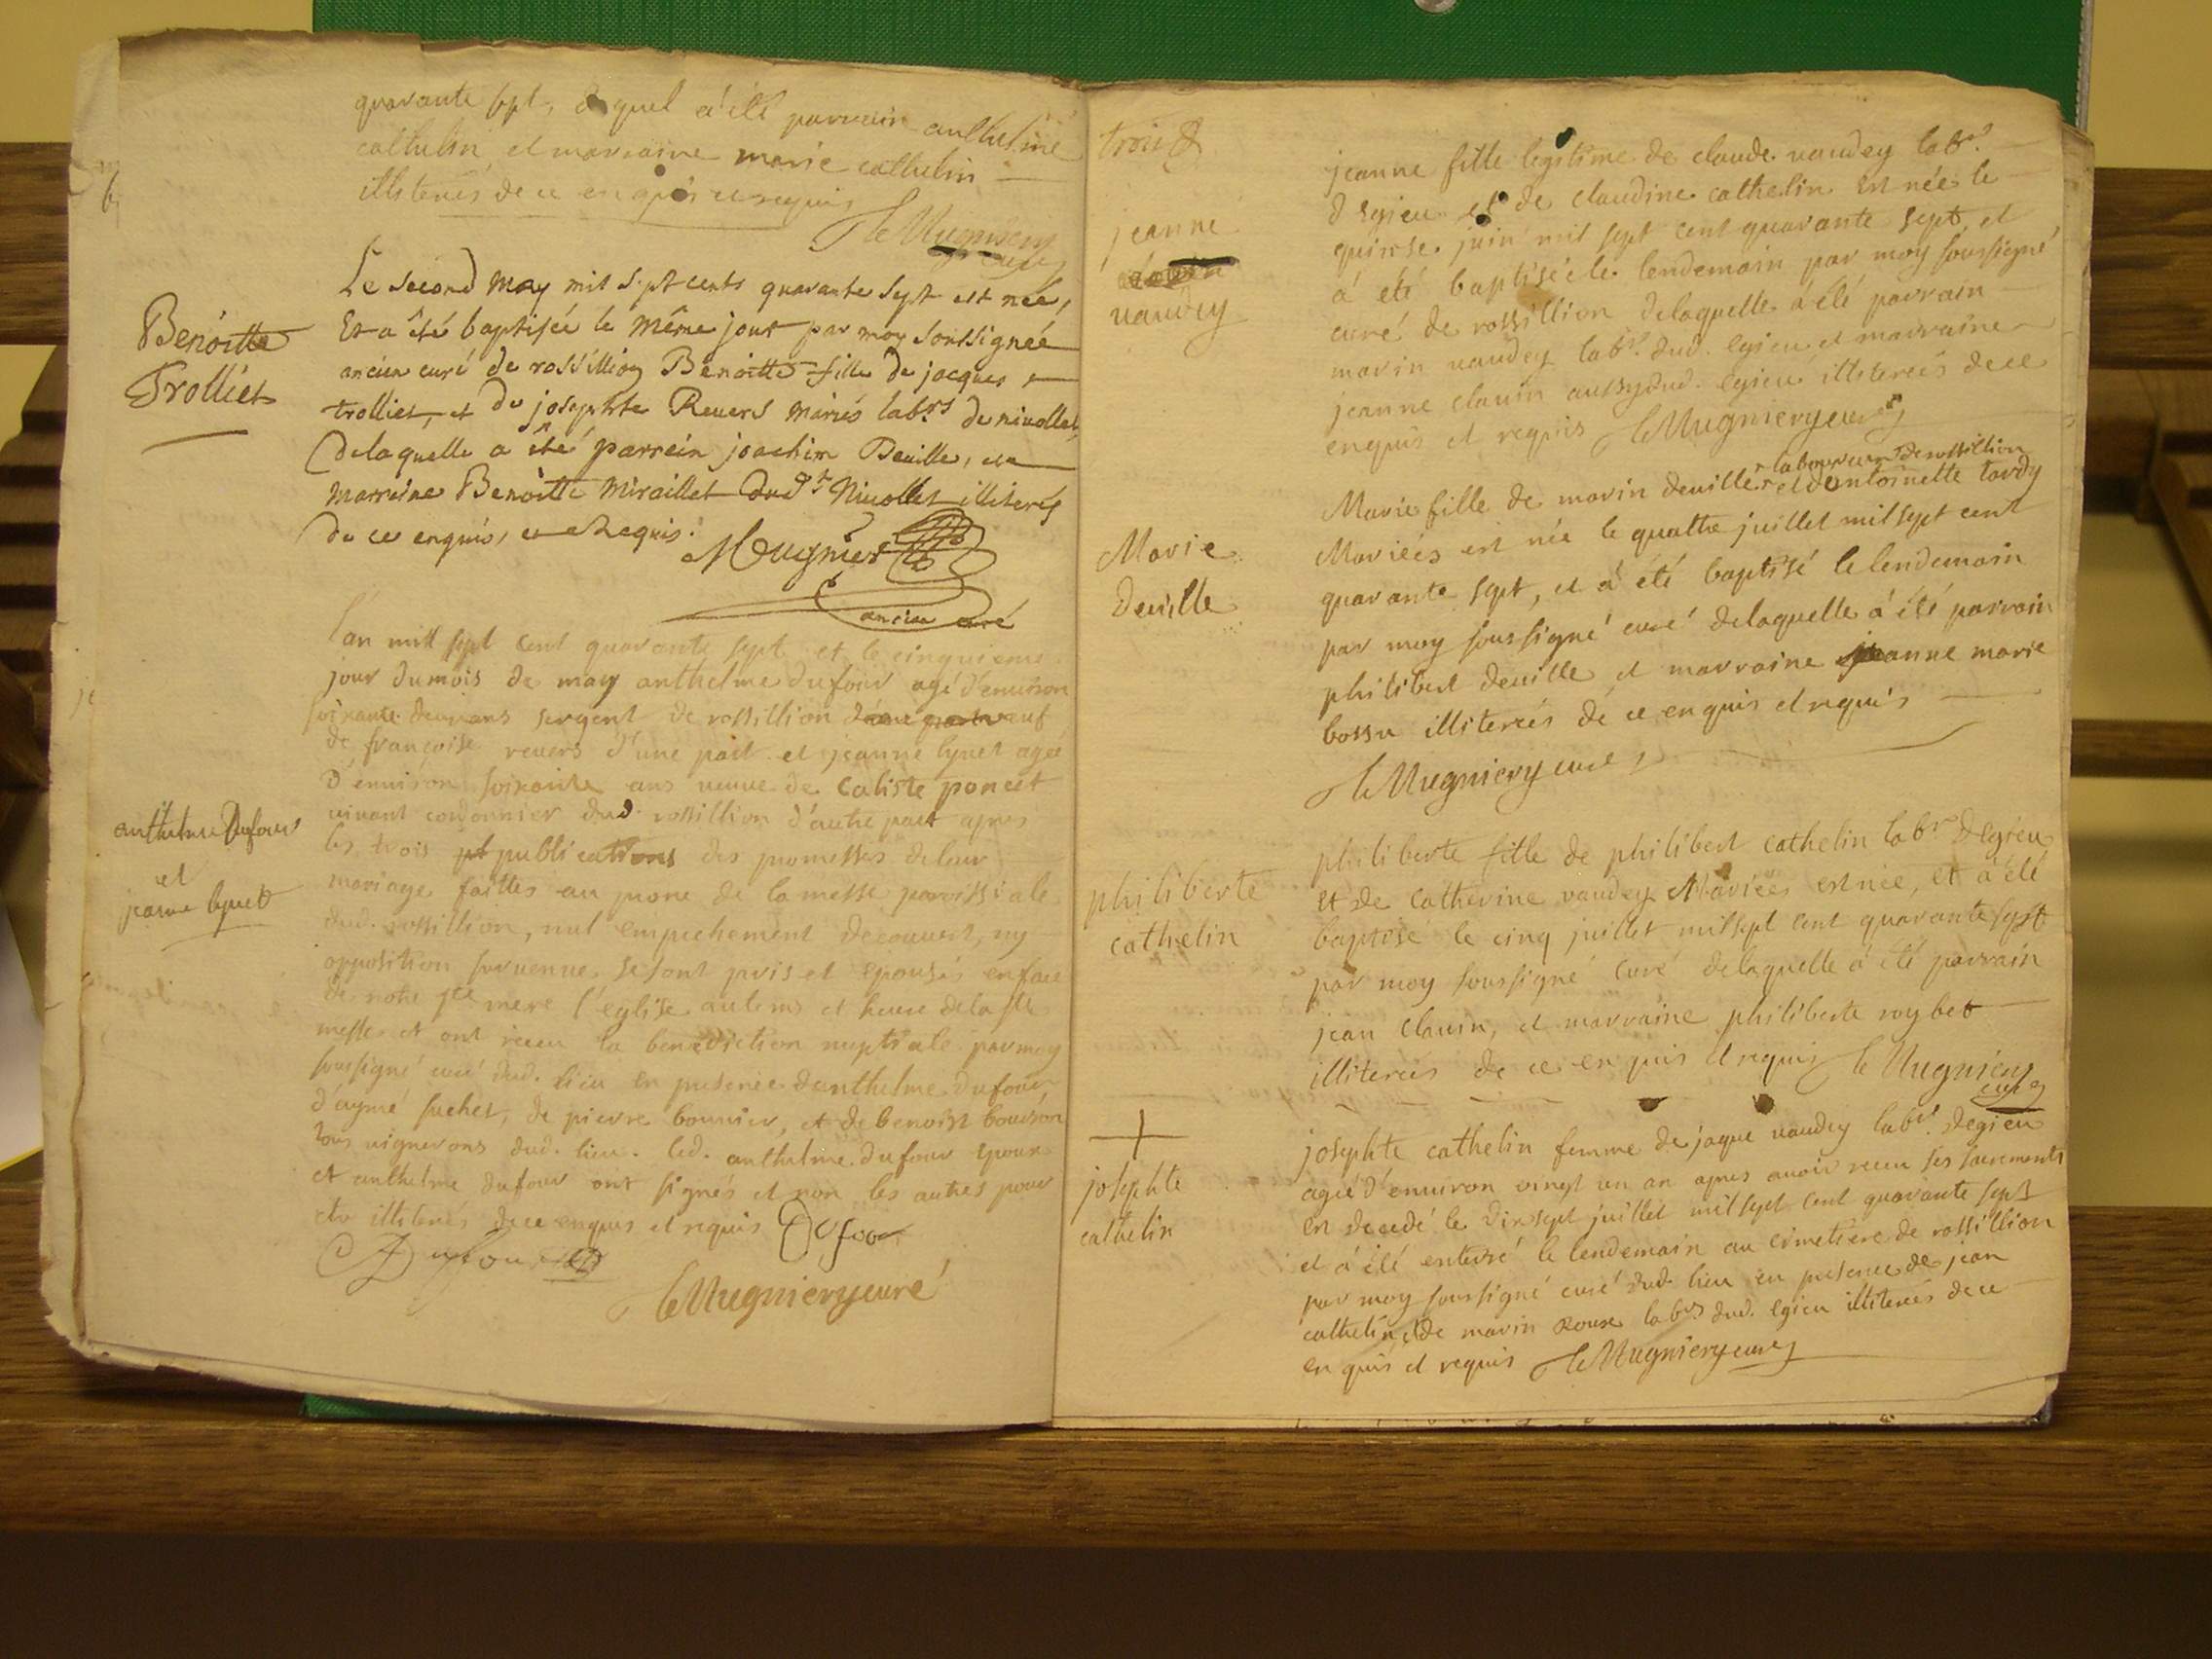 quarante sept, duquel a été parrain anthelme
cathelin et marraine marie cathelin
illiterés de ce enquis et requis
Le Mugniery
curé
Benoitte
Trolliet
Le second may mil sept cents quarante sept est née,
Et a été baptisée le même jour par moy soussignée
ancien curé de rossillion Benoitte fille de jacques
trolliet, et de josephte Reuers mariés labrs de niuollet,
delaquelle a été parrein joachim Deuille, et
marreine Benoitte Miraillet dudt Niuollet illiterés
de ce enquis, et Requis.
Mugnier
ancien curé
anthelme Dufour
et
jeanne lynet
l'an mill sept cent quarante sept et le cinquieme
jour du mois de may anthelme dufour agé d'enuiron
soixante deux ans sergent de rossillion veuf
de françoise reuers d'une part et jeanne lynet agée
d'enuiron soixante ans veuue de Caliste poncet
viuant cordonnier dud. rossillion d'autre part apres
les trois publications des promesses de leur
mariage faittes au prone de la messe parroissiale
dud. rossillion, nul empechement decouuert, ny
opposition suruenue se sont pris et epousés en face
de notre ste mere l'eglise au tems et heure de la ste
messe et ont receu la benediction nuptiale par moy
soussigné curé dud. lieu en presence danthelme dufour
d'aymé suchet, de pierre bonnier, et de benoist
tous vignerons dud. lieu. led. anthelme dufour epoux
et anthelme dufour ont signés et non les autres pour
etre illiterés de ce enquis et requis Dufour
Dufour
le Mugniery curé
trois &
jeanne
vaudey
jeanne fille legitime de claude vaudey labr.
d'egieu et de claudine cathelin est née le
quinse juin mil sept cent quarante sept et
a été baptisée le lendemain par moy soussigné
curé de rossillion delaquelle a été parrain
marin vaudey labr. dud. egieu et marraine
jeanne clauin aussy dud. egieu illiterés de ce
enquis et requis le Mugniery curé
Marie
deuille
laboureur de rossillion
Marie fille de marin deuille et d'antoinette tardy
Mariés est née le quattre juillet mil sept cent
quarante sept, et a été baptisé le lendemain
par moy soussigné curé delaquelle a été parrain
philibert deuille et marraine jeanne marie
bossu illiterés de ce enquis et requis
le Mugniery curé
philiberte
cathelin
philiberte fille de philibert cathelin labr d'egieu
et de catherine vaudey Mariées est née, et a été
baptisé le cinq juillet mil sept cent quarante sept
par moy soussigné curé delaquelle a été parrain
jean clauin, et marraine philiberte roybet
illiterés de ce enquis et requis le Mugniery
curé
josephte
cathelin
josephte cathelin femme de jaque vaudey labr. d'egieu
agée d'enuiron vingt un an apres auoir receu ses sacrements
est decedé le dix sept juillet mil sept cent quarante sept
et a été enterré le lendemain au cimetiere de rossillion
par moy soussigné curé dud. lieu en presence de jean
cathelin et de marin Roux labrs dud. egieu illiterés de ce
enquis et requis le Mugniery curé